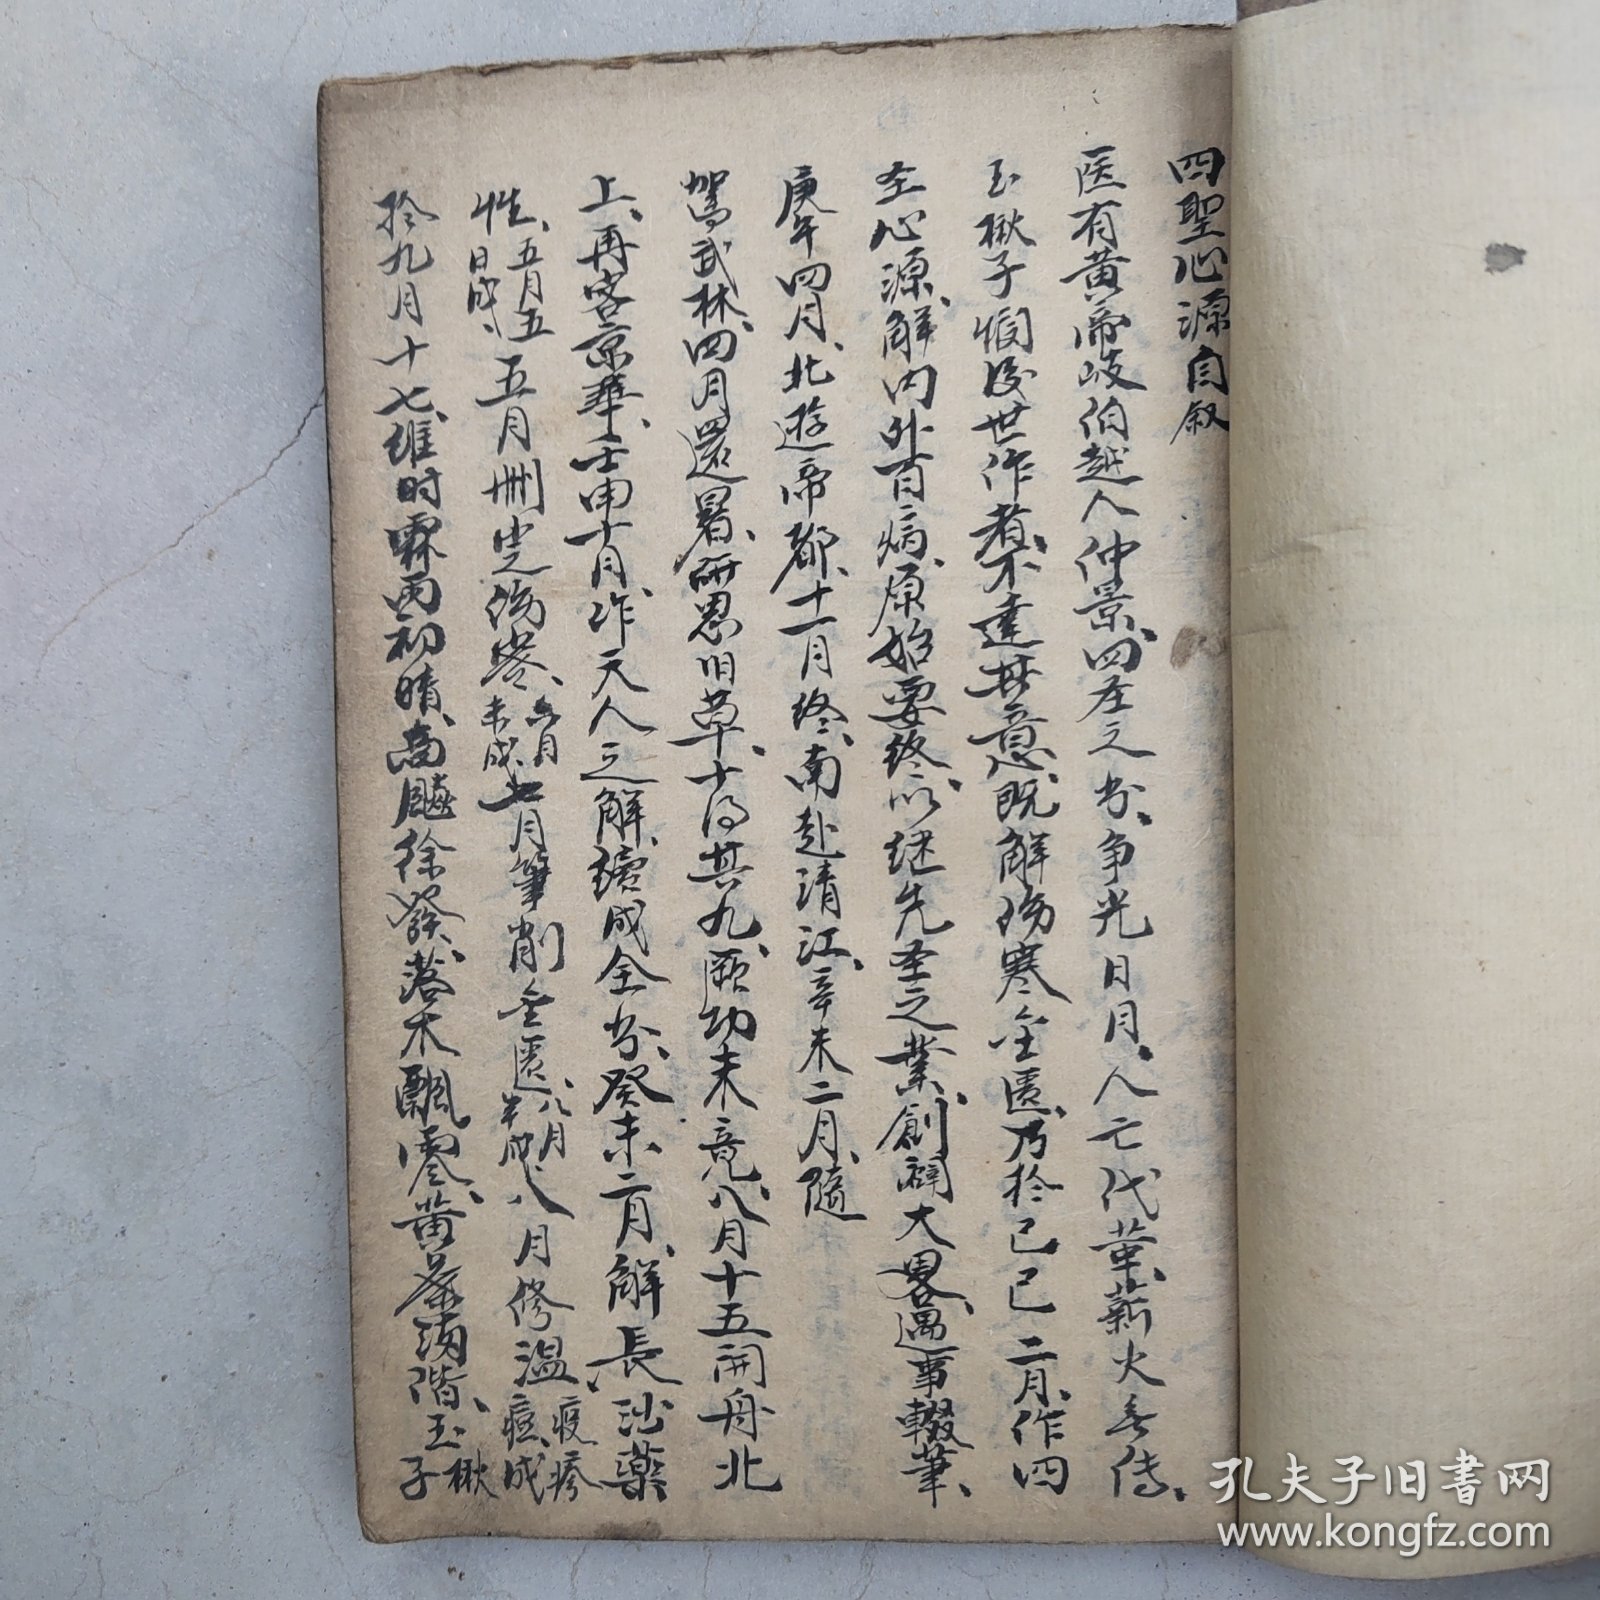 四聖心源自叙
医有黄帝岐伯越人仲景、四圣之书、争光日月、人亡代革、薪火无傳、
玉楸子悯後世作者、不達其意、既解伤寒金匮、乃於己巳二月、作四
圣心源、解内外百病、原始要终、以继先圣之業、創詞大畧、遇事輟筆、
庚午四月、北遊帝都、十一月终、南赴清江、辛未二月、隨
驾武林、四月還署、研思旧草、十得其九、厥功未竟、八月十五開舟北
上、再客京華、壬申十月、作天人之解、續成全书、癸未二月、解長沙薬
性、五月五日成、五月删定伤寒、六月未成、七月筆削金匮、八月半成、八月修温疫痘疹成
於九月十七、維时霖雨初晴、商飈徐發、落木飄零、黄葉满階、玉楸子
孔夫子旧书网
www.kongfz.com